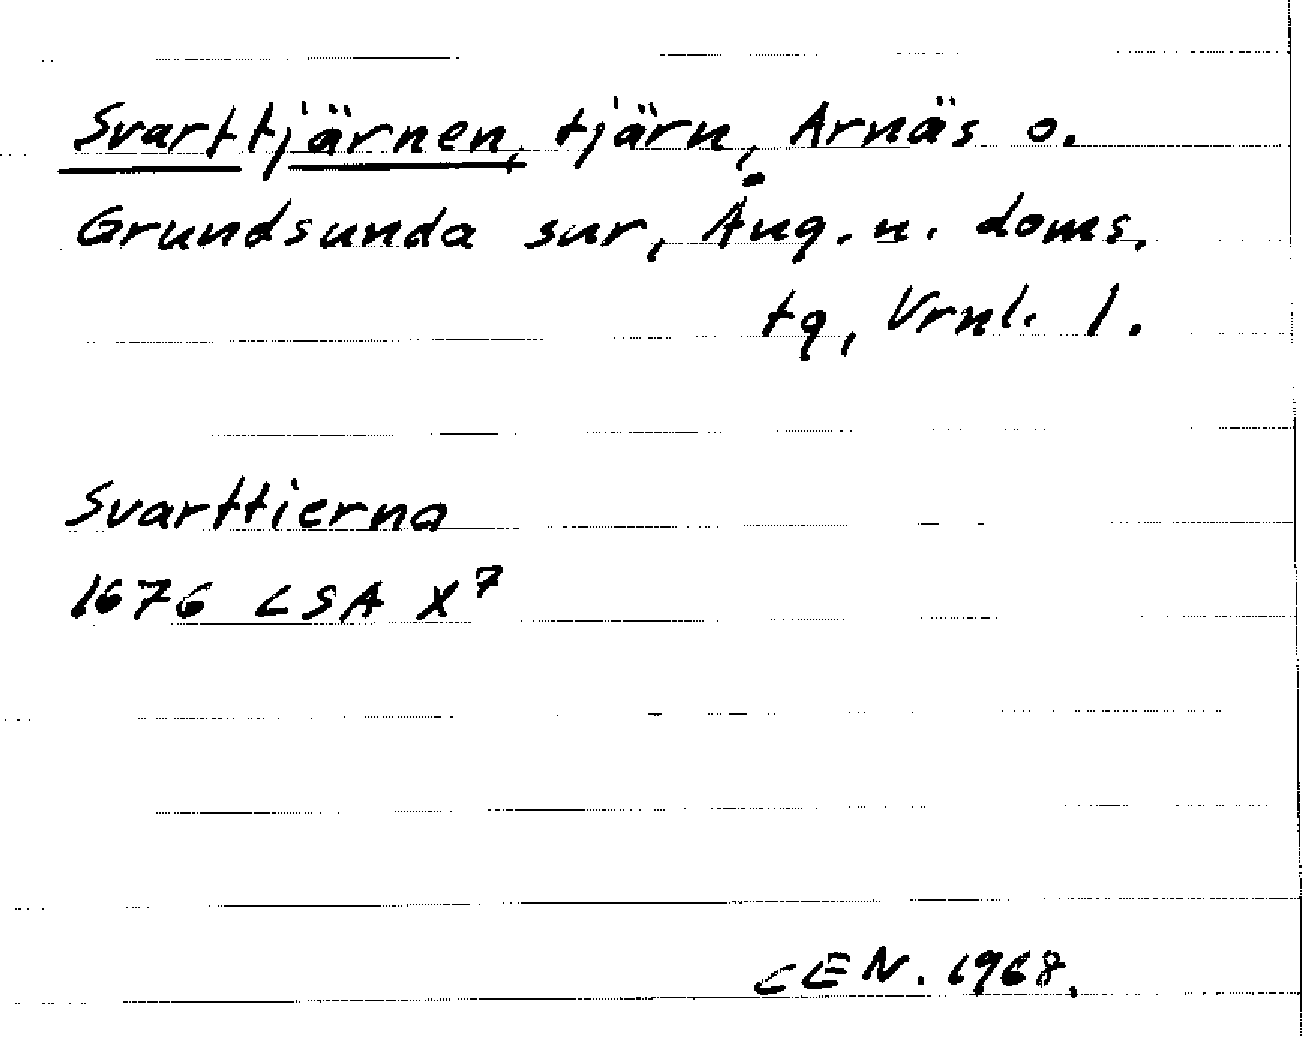 Svarttjärnen, tjärn, Arnäs o.
Grundsunda snr, Ång. n. doms.
tg, Vrnl. l.
Svarttierna
1676 LSA X7
CEN. 1968.